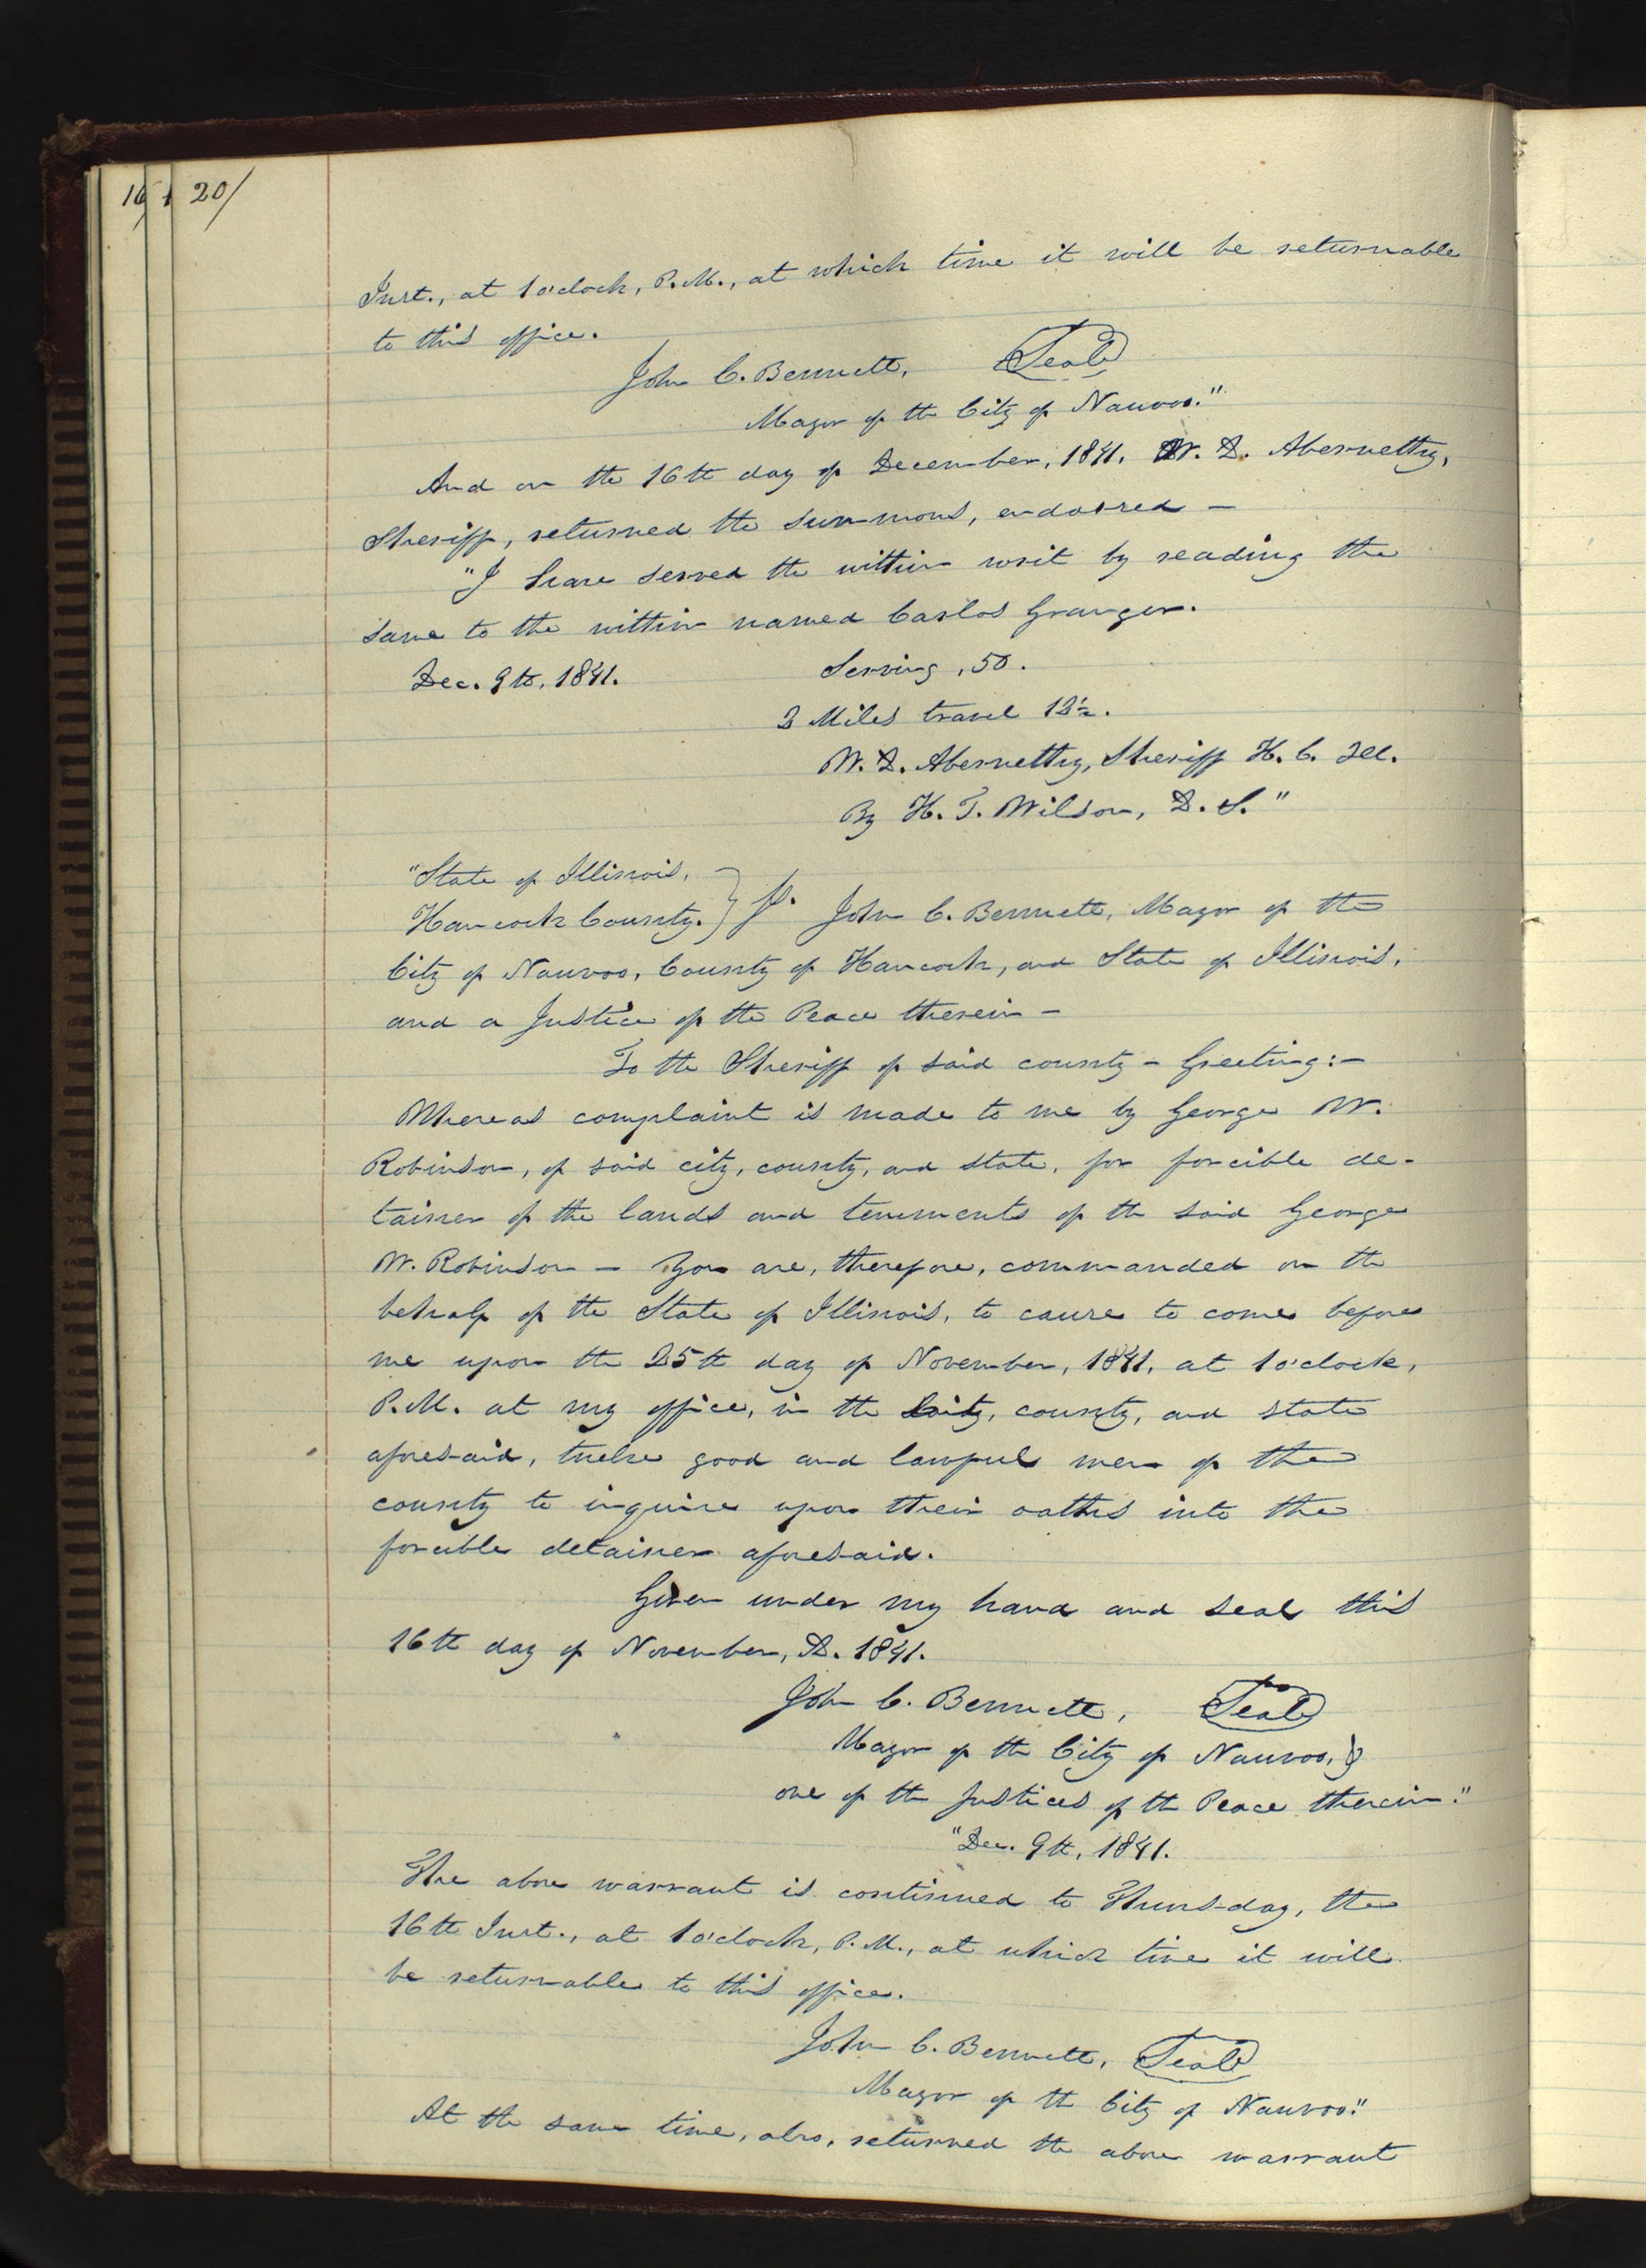 16
20/
Inst., at 1 o'clock, P.M., at which time it will be returnable
to this office.
John C. Bennett, Seal
Mayor of the City of Nauvoo."
And on the 16th day of December, 1841. W. D. Abernethy,
Sheriff, returned the summons, endorsed —
"I have served the within writ by reading the
same to the within named Carlos Granger.
Dec. 9th, 1841. Serving, 50.
2 Miles travel 12½.
W. D. Abernethy, Sheriff H. C. Ill.
By H. T. Wilson, D. S."
"State of Illinois,
Hancock County. } ss. John C. Bennett, Mayor of the
City of Nauvoo, County of Hancock, and State of Illinois,
and a Justice of the Peace therein —
To the Sheriff of said county — Greeting: —
Whereas complaint is made to me by George W.
Robinson, of said city, county, and state, for forcible de-
tainer of the lands and tenements of the said George
W. Robinson — You are, therefore, commanded on the
behalf of the State of Illinois, to cause to come before
me upon the 25th day of November, 1841, at 1 o'clock,
P.M. at my office, in the City, county, and state
aforesaid, twelve good and lawful men of the
county to inquire upon their oaths into the
forcible detainer aforesaid.
Given under my hand and seal this
16th day of November, D. 1841.
John C. Bennett, Seal
Mayor of the City of Nauvoo, &
one of the Justices of the Peace therein."
"Dec. 9th, 1841.
The above warrant is continued to Thursday, the
16th Inst., at 1 o'clock, P.M., at which time it will
be returnable to this office.
John C. Bennett, Seal
Mayor of the City of Nauvoo."
At the same time, also, returned the above warrant